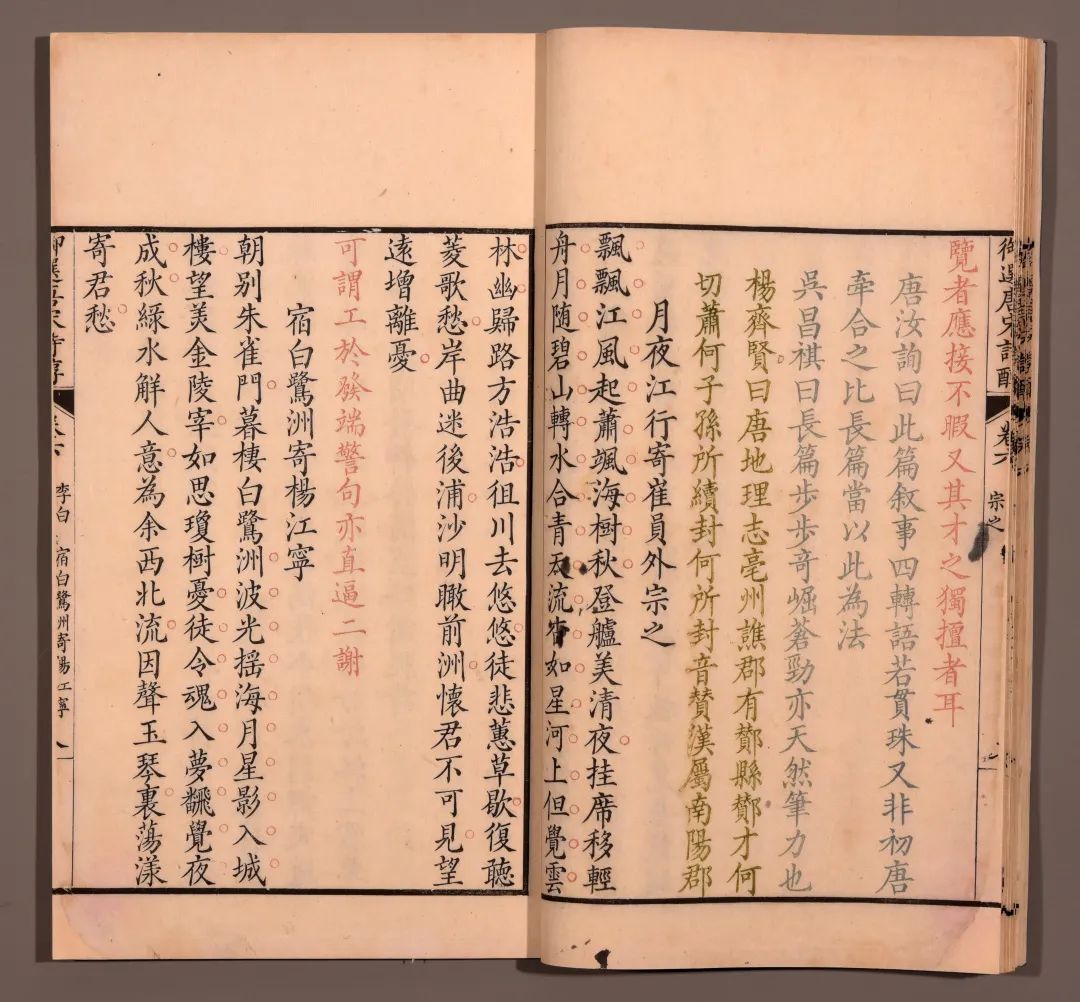 御選唐宋詩醇
卷六
宗之
覽者應接不暇又其才之獨擅者耳
唐汝詢曰此篇叙事四轉語若貫珠又非初唐
牽合之比長篇當以此為法
吳昌祺曰長篇步步奇崛蒼勁亦天然筆力也
楊齊賢曰唐地理志亳州譙郡有酇縣酇才何
切蕭何子孫所續封何所封音贊漢屬南陽郡
月夜江行寄崔員外宗之
飄飄江風起蕭颯海樹秋登艫美清夜挂席移輕
舟月随碧山轉水合青天流杳如星河上但覺雲
林幽歸路方浩浩徂川去悠悠徒悲蕙草歇復聽
菱歌愁岸曲迷後浦沙明瞰前洲懷君不可見望
遠增離憂
可謂工於發端警句亦直逼二謝
宿白鷺洲寄楊江寧
朝別朱雀門暮棲白鷺洲波光揺海月星影入城
樓望美金陵宰如思瓊樹憂徒令魂入夢飜覺夜
成秋綠水解人意為余西北流因聲玉琴裏蕩漾
寄君愁
御選唐宋詩醇
卷六
李白
宿白鷺州寄陽江寧